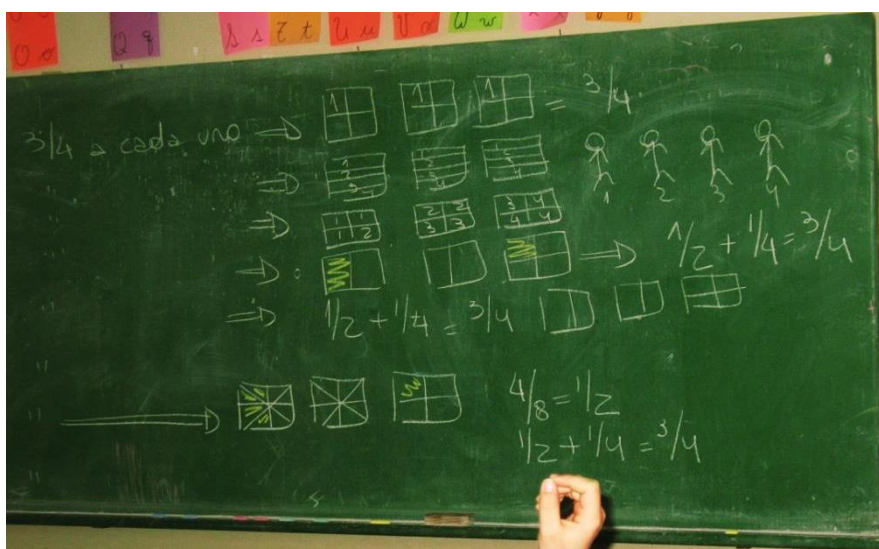 O o Q q S s Z t U u V v W w
1 1 1 = 3/4
3/4 a cada uno ⇒
" ⇒ 1 2 3 4 1 2 3 4 1 2 3 4
1 2 3 4
" ⇒ 1 1 1 2 2 2 3 3 3 4 4 4
" ⇒ ⇒ 1/2 + 1/4 = 3/4
⇒ 1/2 + 1/4 = 3/4
"
" ⇒ 4/8 = 1/2
1/2 + 1/4 = 3/4
"